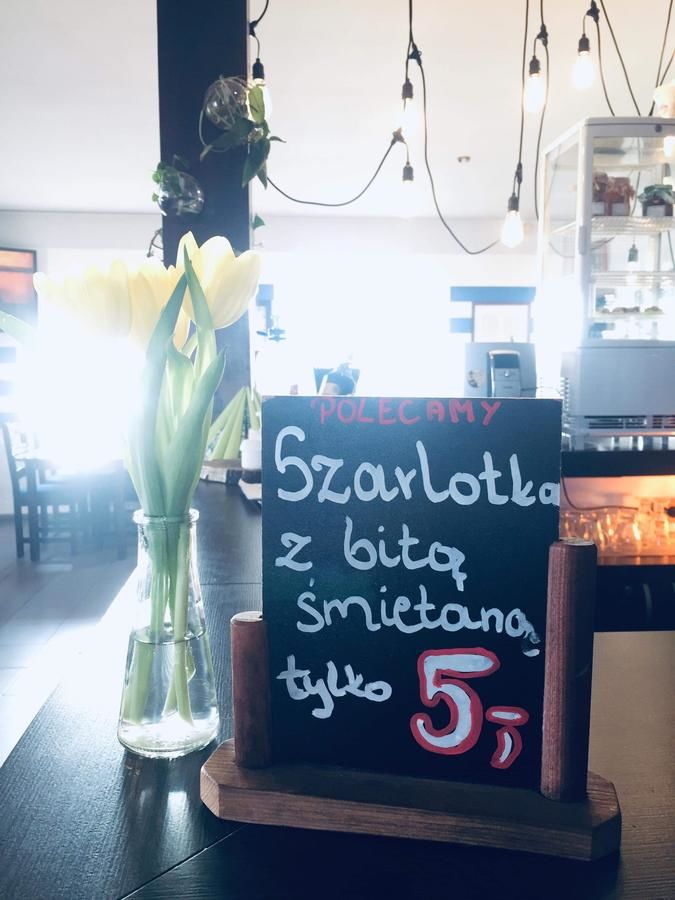 POLECAMY
Szarlotka
z bitą
śmietaną
tylko 5,-